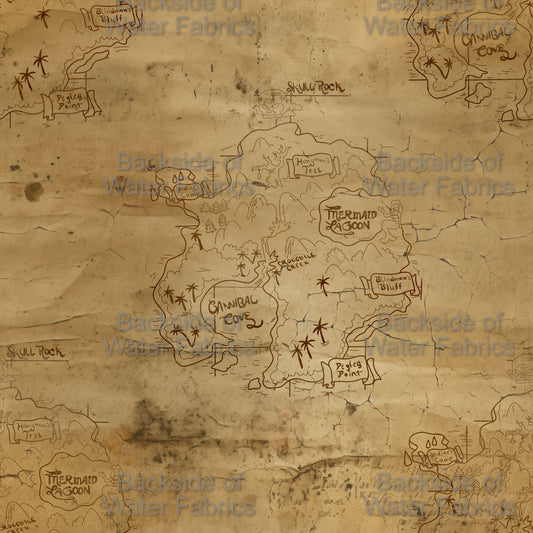 Backside of
Water Fabrics
Backside of
Water Fabrics
Bluff
CANNIBAL
COVE
Peg leg
Point
SKULL ROCK
Backside of
Water Fabrics
Backside of
Water Fabrics
Hangman's
Tree
MERMAID
LAGOON
CROCODILE
CREEK
Blindman's
Bluff
CANNIBAL
COVE
Backside of
Water Fabrics
Backside of
Water Fabrics
SKULL ROCK
Peg leg
Point
Hangman's
Tree
MERMAID
LAGOON
Backside of
Water Fabrics
Backside of
Water Fabrics
CROCODILE
CREEK